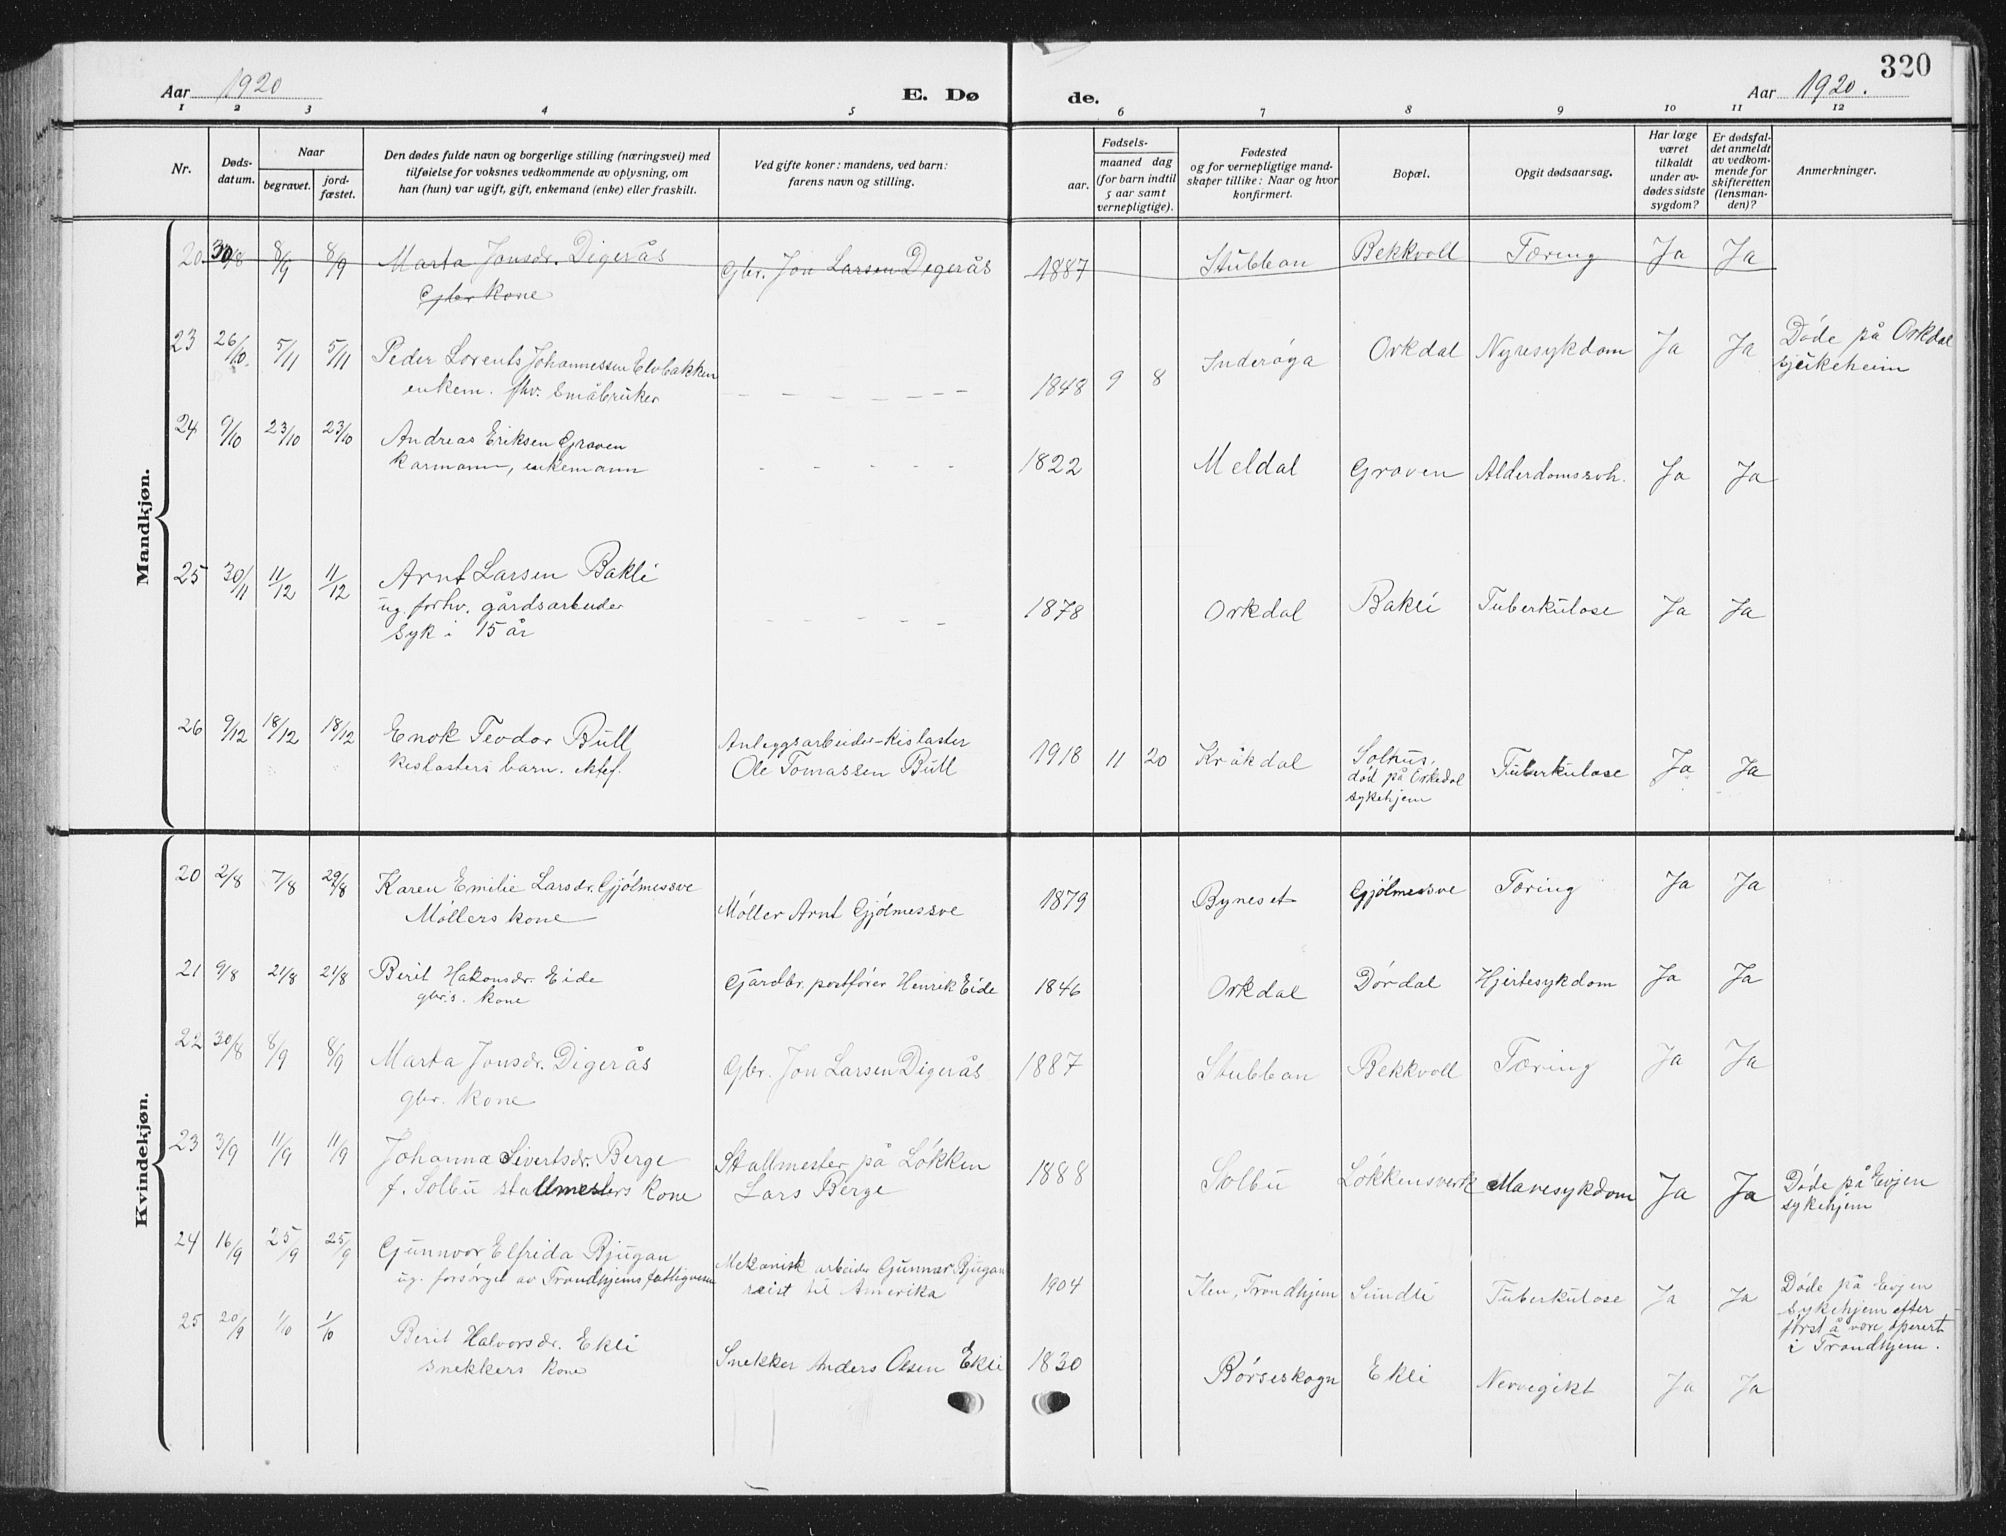 320
Aar 1920
E. Dø
de.
Aar 1920.
1 2 3 4 5 6 7 8 9 10 11 12
Nr.
Døds-
datum.
Naar
begravet.
jord-
fæstet.
Den dødes fulde navn og borgerlige stilling (næringsvei) med
tilføielse for voksnes vedkommende av oplysning, om
han (hun) var ugift, gift, enkemand (enke) eller fraskilt.
Ved gifte koner: mandens, ved barn:
farens navn og stilling.
Fødsels-
aar.
maaned dag
(for barn indtil
5 aar samt
vernepligtige).
Fødested
og for vernepligtige mand-
skaper tillike: Naar og hvor
konfirmert.
Bopæl.
Opgit dødsaarsag.
Har læge
været
tilkaldt
under av-
dødes sidste
sygdom?
Er dødsfal-
det anmeldt
av vedkom-
mende for
skifteretten
(lensman-
den)?
Anmerkninger.
Mandkjøn.
20 30/8 8/9 8/9 Marta Jonsdr. Digerås Gbr. Jon Larsen Digerås 1887 Stubban Bekkvoll Tæring Ja Ja
Gbr kone
23 26/10 5/11 5/11 Peder Lorents Johannessen Elvbakken 1848 9 8 Inderøya Orkdal Nyresykdom Ja Ja Døde på Orkdal
enkem. fhv. småbruker - - - - - - sjukeheim
24 9/10 23/10 23/10 Andreas Eriksen Graven 1822 Meldal Graven Alderdomssvh. Ja Ja
karmann, enkemann - - - - -
25 30/11 11/12 11/12 Arnt Larsen Bakli 1878 Orkdal Bakli Tuberkulose Ja Ja
ug. forhv. gårdsarbeider - - - - -
syk i 15 år
26 9/12 18/12 18/12 Enok Teodor Bull Anleggsarbeider-kislaster 1918 11 20 Kråkdal Solhus, Tuberkulose Ja Ja
kislasters barn. ektef. Ole Tomassen Bull død på Orkedal
sykehjem
Kvindekjøn.
20 2/8 7/8 29/8 Karen Emilie Larsdr. Gjølmessve Møller Arnt Gjølmessve 1879 Byneset Gjølmessve Tæring Ja Ja
Møllers kone
21 9/8 21/8 21/8 Berit Hakonsdr. Eide Gårdbr. postfører Henrik Eide 1846 Orkdal Dørdal Hjertesykdom Ja Ja
gbr.s. kone
22 30/8 8/9 8/9 Marta Jonsdr. Digerås Gbr. Jon Larsen Digerås 1887 Stubban Bekkvoll Tæring Ja Ja
gbr. kone
23 3/9 11/9 11/9 Johanna Sivertsdr. Berge Stallmester på Løkken 1888 Solbu Løkkensverk Mavesykdom Ja Ja Døde på Evjen
f. Solbu stallmesters kone Lars Berge sykehjem
24 16/9 25/9 25/9 Gunnvor Elfrida Bjugan Mekanisk arbeider Gunnar Bjugan 1904 Ilen, Trondhjem Sundli Tuberkulose Ja Ja Døde på Evjen
ug. forsørget av Trondhjems fattigvesen reist til Amerika sykehjem efter
først å være operert
i Trondhjem.
25 20/9 1/10 1/10 Berit Halvorsdr. Ekli Snekker Anders Olsen Ekli 1830 Børseskogn Ekli Nervegikt Ja Ja
snekkers kone